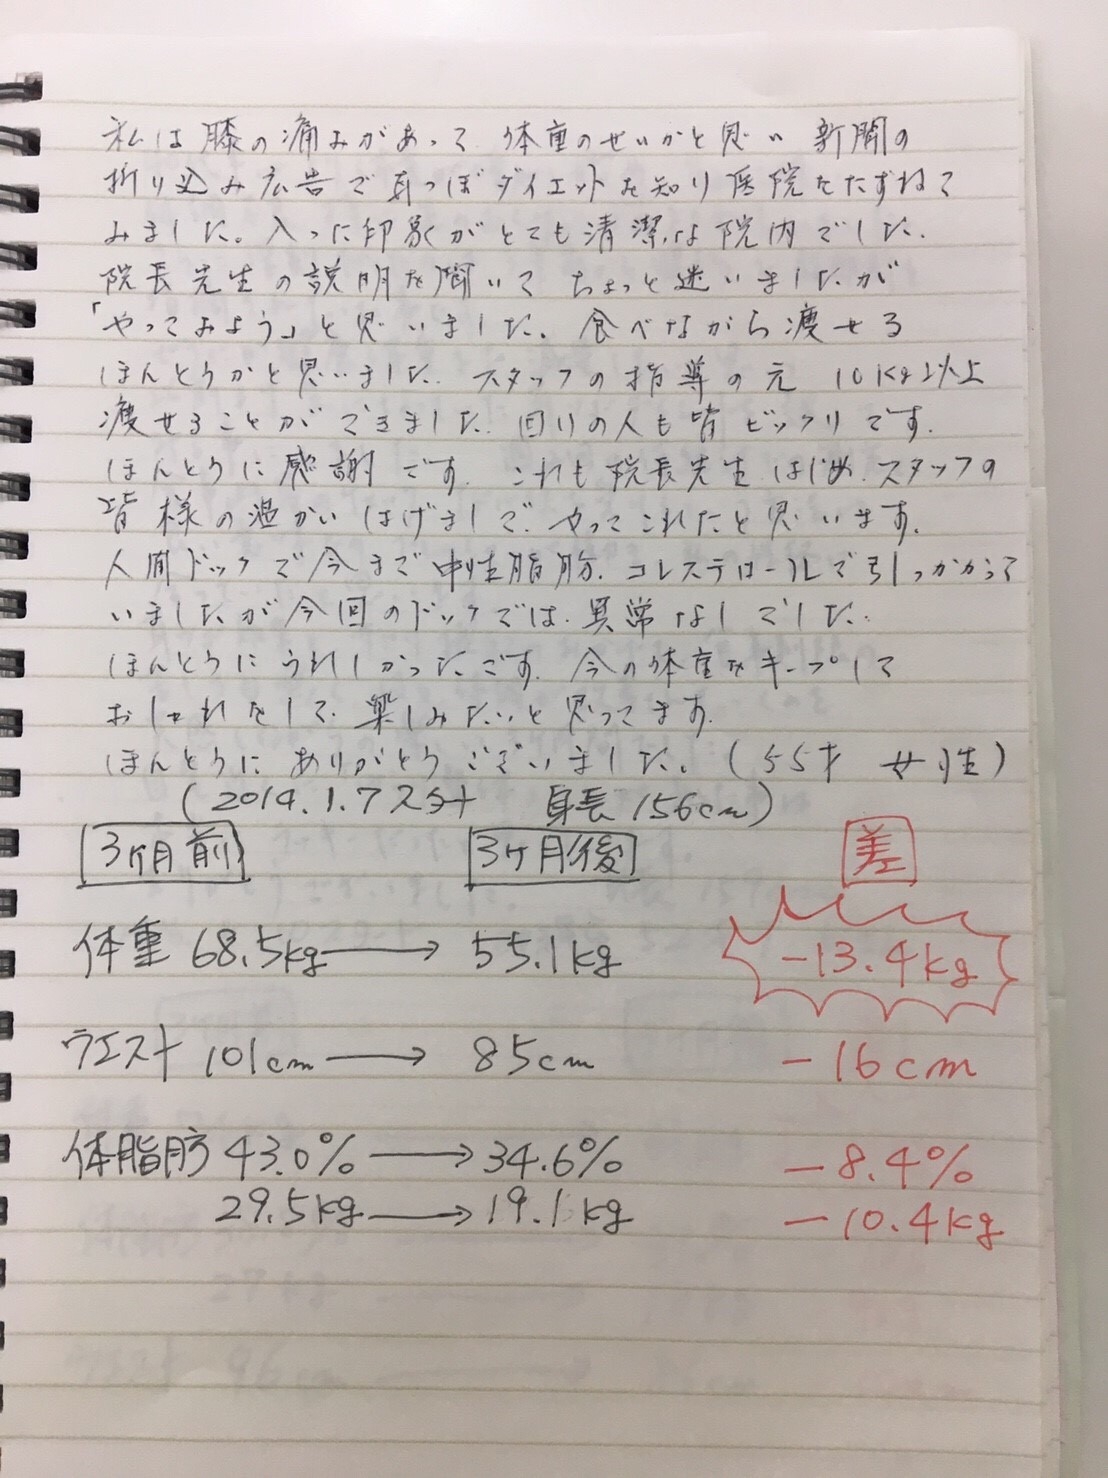 私は膝の痛みがあって、体重のせいかと思い 新聞の
折り込み広告で耳つぼダイエットを知り医院をたずねて
みました。入った印象がとても清潔な院内でした。
院長先生の説明を聞いて ちょっと迷いましたが
「やってみよう」と思いました。食べながら痩せる
ほんとうかと思いました。スタッフの指導の元 10kg以上
痩せることができました。回りの人も皆 ビックリです。
ほんとうに感謝です。これも院長先生はじめ、スタッフの
皆様の温かいはげましで、やってこれたと思います。
人間ドックで今まで中性脂肪、コレステロールで引っかかって
いましたが今回のドックでは、異常なしでした。
ほんとうにうれしかったです。今の体重をキープして
おしゃれをして、楽しみたいと思ってます。
ほんとうに ありがとう ございました。(55才 女性)
(2014.1.7スタート 身長156cm)
3ヶ月前 3ヶ月後 差
体重 68.5kg→55.1kg -13.4kg
ウエスト 101cm→85cm -16cm
体脂肪 43.0%→34.6% -8.4%
29.5kg→19.1kg -10.4kg